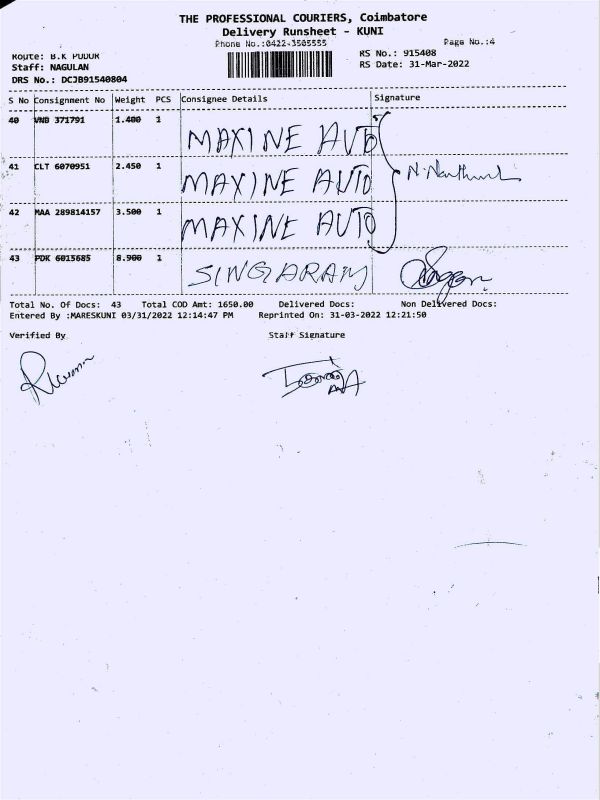 THE PROFESSIONAL COURIERS, Coimbatore
Delivery Runsheet - KUNI
Phone No.:0422-3505555 Page No.:4
Route: B.K PUDUR RS No.: 915408
Staff: NAGULAN RS Date: 31-Mar-2022
DRS No.: DCJB91540804
S No Consignment No Weight PCS Consignee Details Signature
40 VNB 371791 1.400 1 MAXINE AUTO
41 CLT 6070951 2.450 1 MAXINE AUTO
42 MAA 289814157 3.500 1 MAXINE AUTO
43 PDK 6015685 8.900 1 SINGARAM
Total No. Of Docs: 43 Total COD Amt: 1650.00 Delivered Docs: Non Delivered Docs:
Entered By :MARESKUNI 03/31/2022 12:14:47 PM Reprinted On: 31-03-2022 12:21:50
Verified By Staff Signature